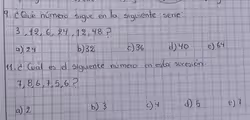 9. ¿Qué número sigue en la siguiente serie:
3, 12, 6, 24, 12, 48?
a) 24 b) 32 c) 36 d) 40 e) 64
11. ¿Cual es el siguiente numero en esta sucesión
7, 8, 6, 7, 5, 6?
a) 2 b) 3 c) 4 d) 5 e) 1